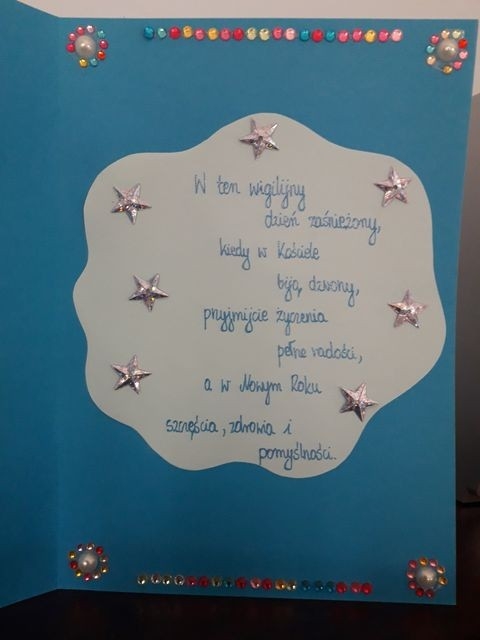 W ten wigilijny
dzień zaśnieżony,
kiedy w Kościele
biją, dzwony,
przyjmijcie życzenia
pełne radości,
a w Nowym Roku
szczęścia, zdrowia i
pomyślności.